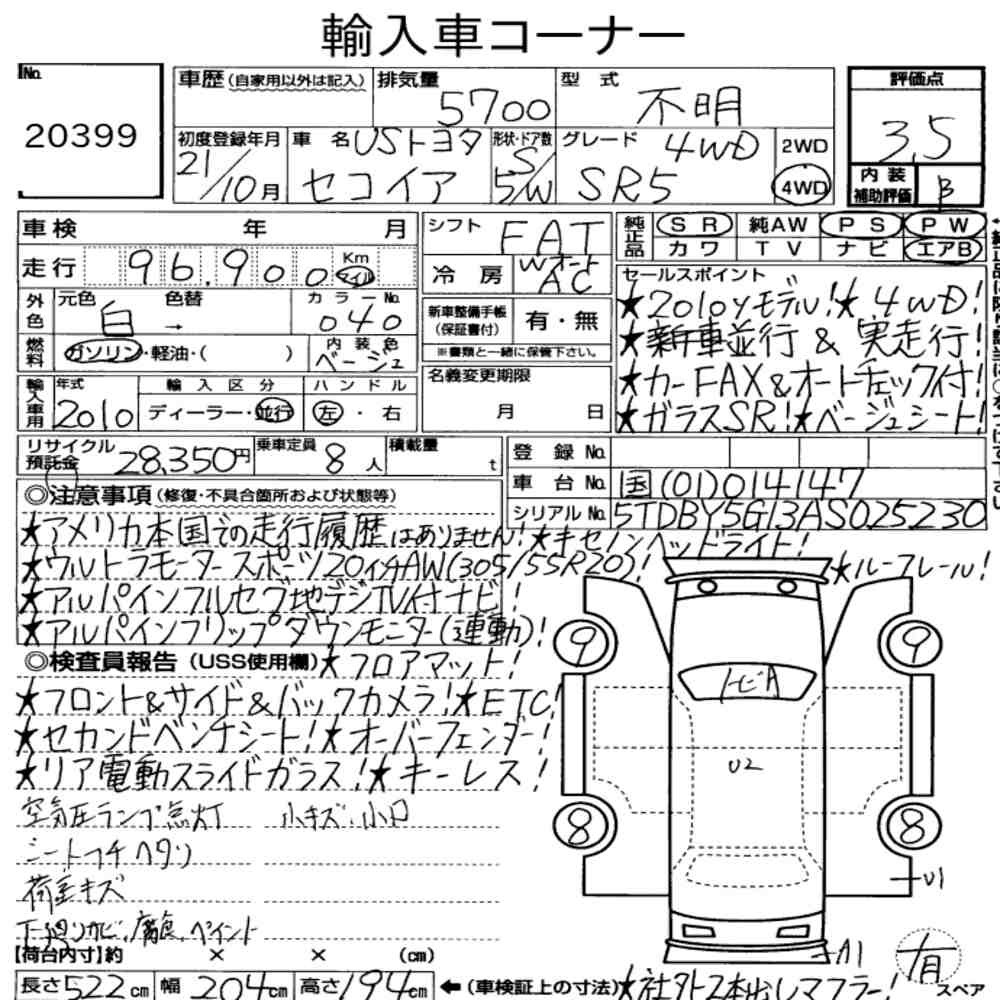 輸入車コーナー
No. 20399
車歴(自家用以外は記入) 排気量 5700 型式 不明 評価点 3.5
初度登録年月 21/10月 車名 USトヨタ セコイア 形状・ドア数 S/5W グレード 4WD SR5 2WD 4WD
内装補助評価 B
車検 年 月 シフト FAT 純正品 SR 純AW PS PW
カワ TV ナビ エアB
走行 96,900 Km マイル 冷房 Wオート AC
外色 元色 白 → 色替 カラーNo. 040
新車整備手帳(保証書付) 有・無
※書類と一緒に保管下さい。
燃料 ガソリン・軽油・( ) 内装色 ベージュ
輸入車用 年式 2010 輸入区分 ディーラー・並行 ハンドル 左・右
名義変更期限 月 日
セールスポイント
★2010yモデル!★4WD!
★新車並行&実走行!
★カーFAX&オートチェック付!
★ガラスSR!★ベージュシート!
リサイクル預託金 28,350円 乗車定員 8人 積載量 t
登録No.
車台No. 国(01)014147
シリアルNo. 5TDBY5G13AS025230
◎注意事項(修復・不具合箇所および状態等)
★アメリカ本国での走行履歴はありません!★キセノンヘッドライト!
★ウルトラモータースポーツ20インチAW(305/55R20)! ★ルーフレール!
★アルパインフルセグ地デジTV付ナビ!
★アルパインフリップダウンモニター(連動)!
◎検査員報告(USS使用欄)★フロアマット!
★フロント&サイド&バックカメラ!★ETC!
★セカンドベンチシート!★オーバーフェンダー!
★リア電動スライドガラス!★キーレス!
空気圧ランプ点灯 小キズ、小凹
シートコチヘタリ
荷室キズ
下廻りサビ、腐食、ペイント
9 9
トビA
U2
8 8
U1
A1
有 スペア
【荷台内寸】約 × × (cm)
長さ522cm 幅204cm 高さ194cm ←(車検証上の寸法) ★社外トス本出しマフラー!